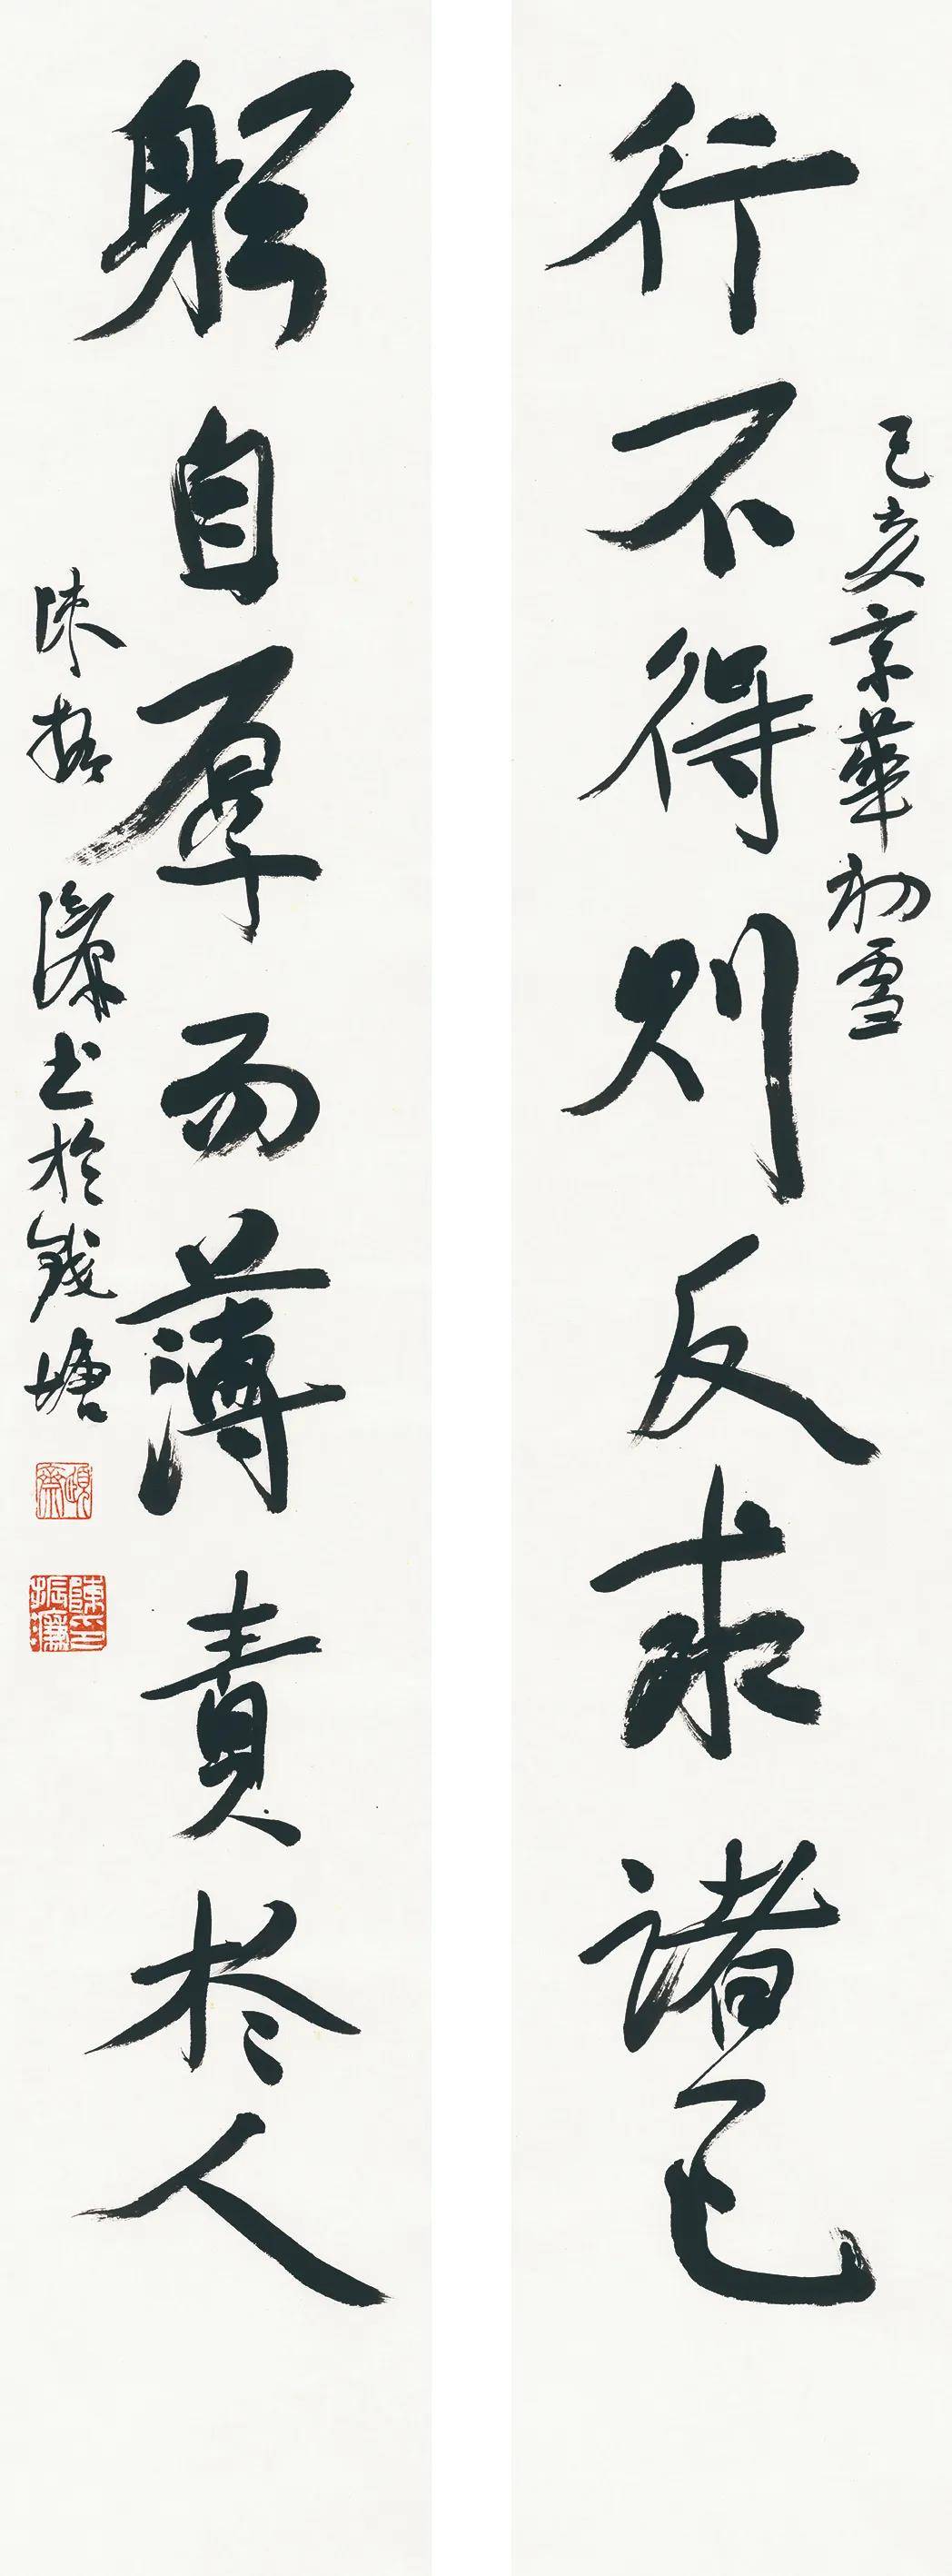 己亥京華初雪
行不得則反求諸己
躬自厚而薄責於人
陳振濂書於錢塘
頤齋
陳振濂印